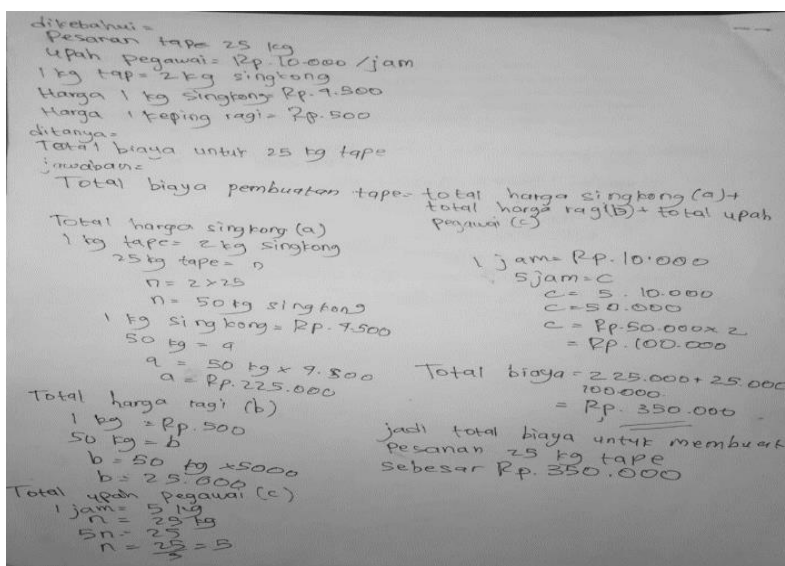 diketahui =
Pesanan tape 25 kg
upah pegawai = Rp. 10.000 /jam
1 kg tap = 2 kg singkong
Harga 1 kg singkong = Rp. 4.500
Harga 1 keping ragi = Rp. 500
ditanya =
Total biaya untuk 25 kg tape
jawaban =
Total biaya pembuatan tape = total harga singkong (a) +
total harga ragi (b) + total upah
pegawai (c)
Total harga singkong (a)
1 kg tape = 2 kg singkong
25 kg tape = n
n = 2 x 25
n = 50 kg singkong
1 kg singkong = Rp. 4.500
50 kg = a
a = 50 kg x 4.500
a = Rp. 225.000
Total harga ragi (b)
1 kg = Rp. 500
50 kg = b
b = 50 kg x 5000
b = 25.000
Total upah pegawai (c)
1 jam = 5 kg
n = 25 kg
5n = 25
n = 25/5 = 5
1 jam = Rp. 10.000
5 jam = c
c = 5 . 10.000
c = 50.000
c = Rp. 50.000 x 2
= Rp. 100.000
Total biaya = 225.000 + 25.000
100.000
= Rp. 350.000
jadi total biaya untuk membuat
pesanan 25 kg tape
sebesar Rp. 350.000